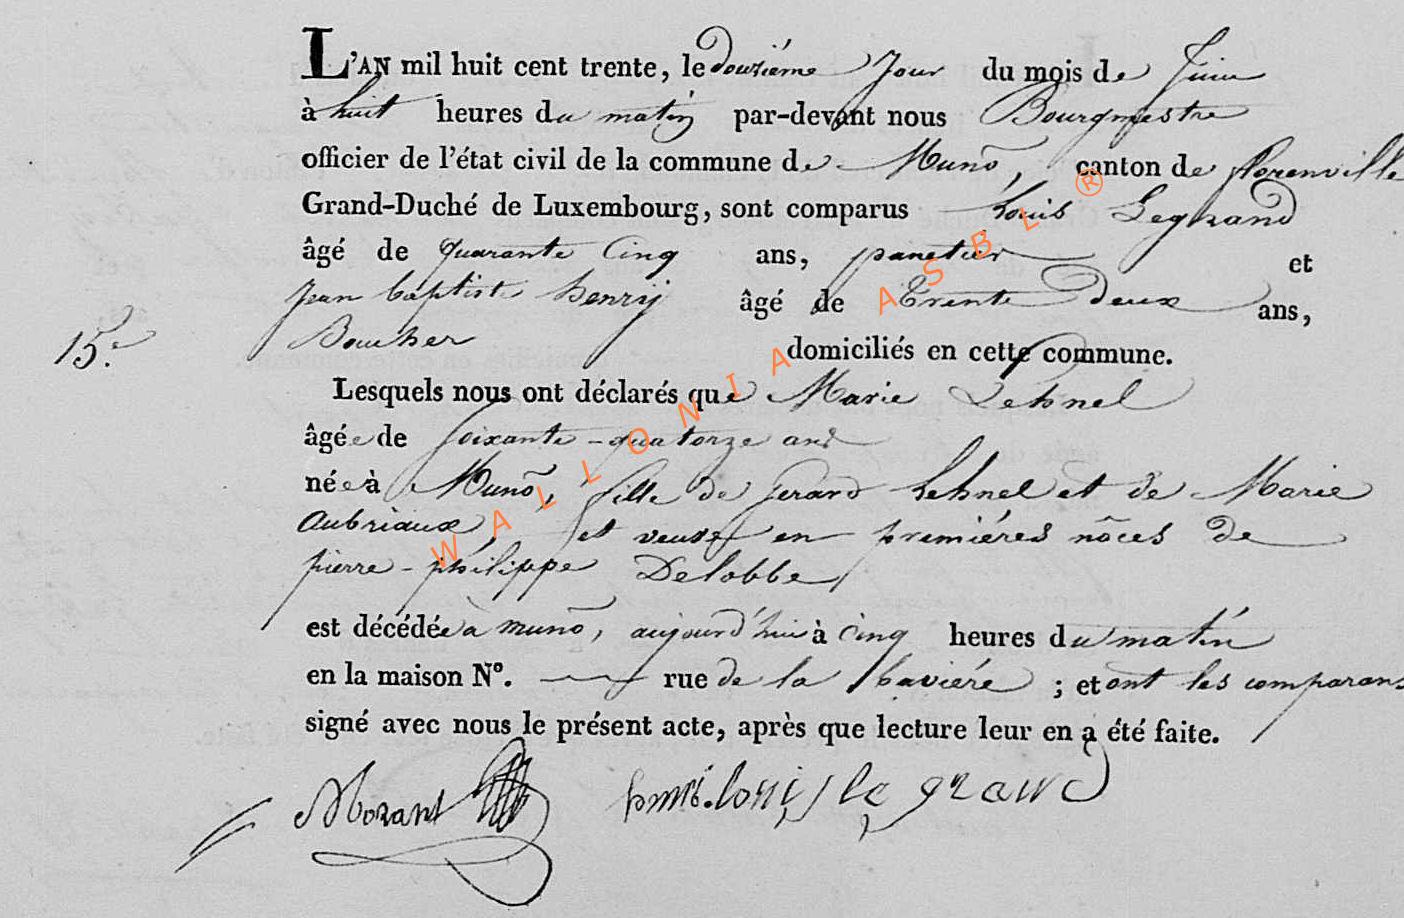 L'AN mil huit cent trente, le douziéme Jour du mois de Juin
à huit heures du matin par-devant nous Bourgmestre
officier de l'état civil de la commune de Muno, canton de florenville
Grand-Duché de Luxembourg, sont comparus Louis Legrand
âgé de quarante Cinq ans, panetier et
jean baptiste henrij âgé de Trente deux ans,
Boucher domiciliés en cette commune.
15.e
Lesquels nous ont déclarés que Marie Lehnel
âgée de Soixante-quatorze ans
née à Muno, fille de gerard Lehnel et de Marie
Aubriaux, et veuve en premiéres nôces de
pierre-philippe Delobbe,
est décédée à muno, aujourd'hui à Cinq heures du matin
en la maison Nº. rue de la baviére ; et ont les comparans
signé avec nous le présent acte, après que lecture leur en a été faite.
Morant henri. louis le grand
WALLONIA ASBL ®